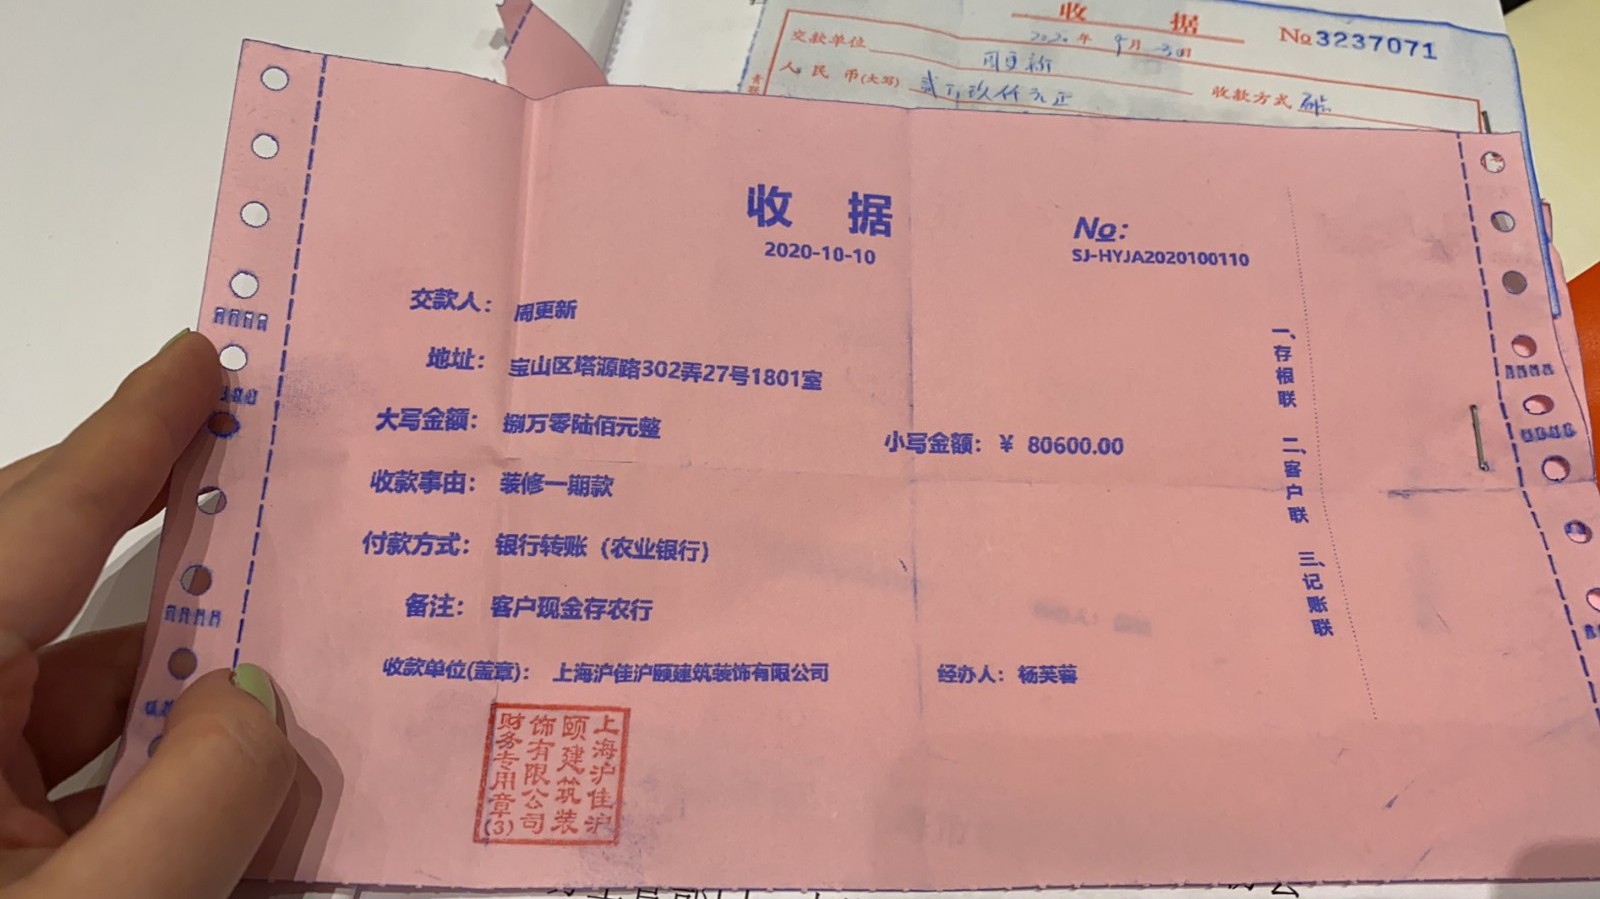 收 据
No 3237071
2020年 9月30日
交款单位 周更新
人民币(大写) 贰万玖仟元正
收款方式
收 据
No:
2020-10-10
SJ-HYJA2020100110
交款人： 周更新
地址： 宝山区塔源路302弄27号1801室
大写金额： 捌万零陆佰元整
小写金额：￥ 80600.00
收款事由： 装修一期款
付款方式： 银行转账（农业银行）
备注： 客户现金存农行
收款单位(盖章)： 上海沪佳沪颐建筑装饰有限公司
经办人： 杨芙蓉
一、存根联 二、客户联 三、记账联
上海沪佳沪
颐建筑装
饰有限公司
财务专用章(3)